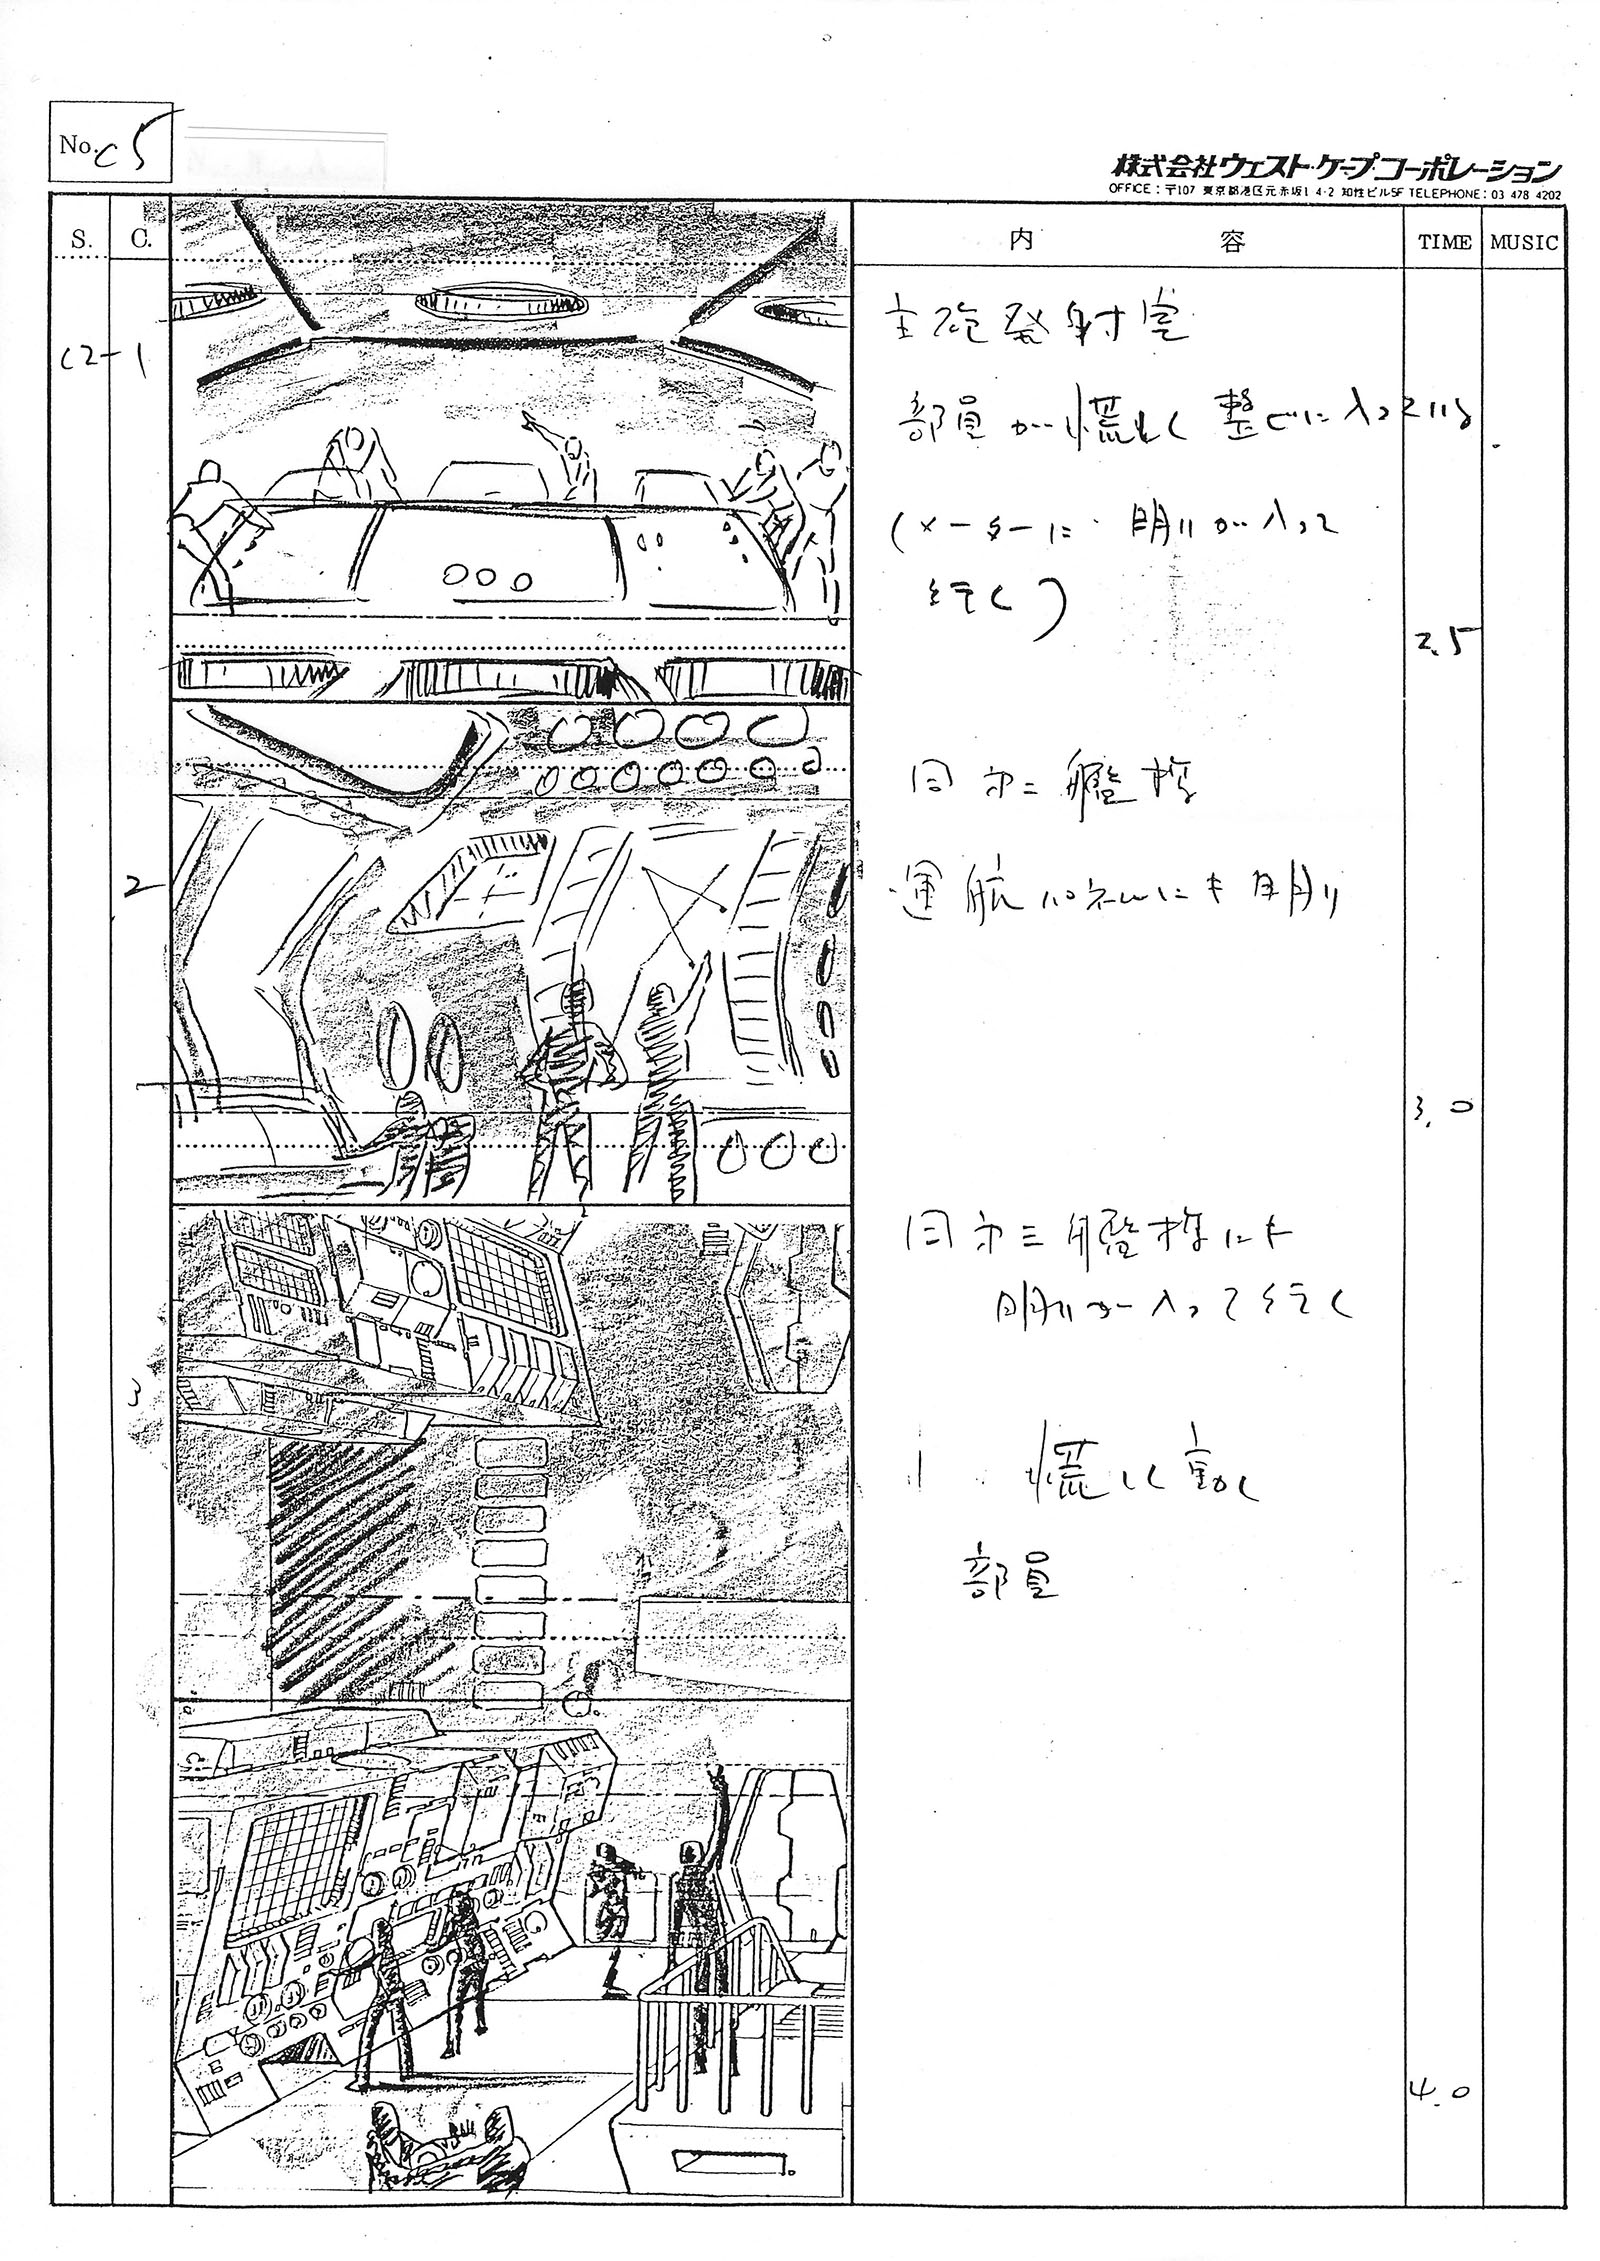 No. C5
株式会社ウエスト・ケープ・コーポレーション
OFFICE：〒107 東京都港区元赤坂1-4-2 知性ビル5F TELEPHONE：03 478 4202
S. C. 内容 TIME MUSIC
C2-1
主砲発射室
部員が慌しく整びに入っている
(メーターに明りが入って
行く)
2.5
2
同オ二艦橋
運航パネルにも明り
3.0
3
同オ三艦橋にも
明りが入って行く
慌しく動く
部員
4.0